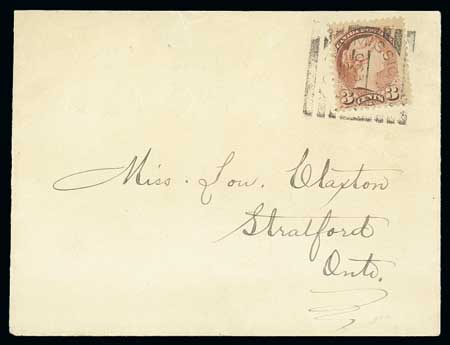 CANADA POSTAGE
3 CENTS 3
Miss. Lou. Claxton
Stratford
Ont.